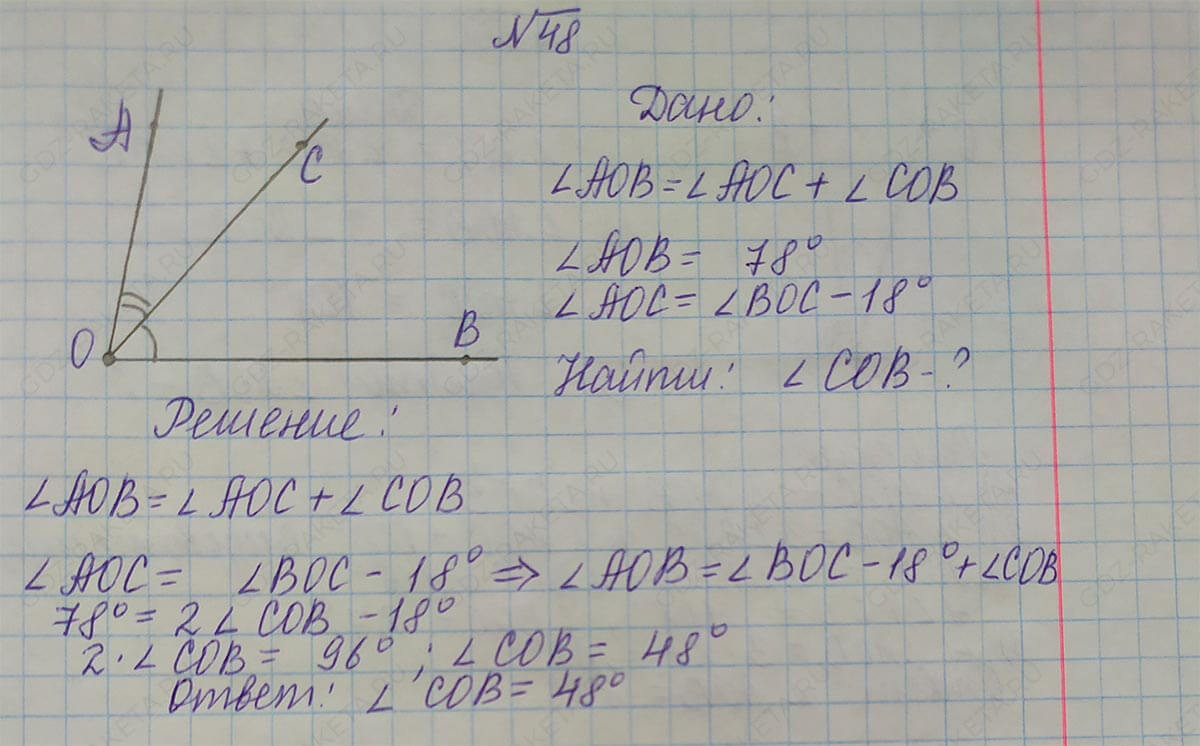 №48
A
C
O
B
Дано:
∠AOB = ∠AOC + ∠COB
∠AOB = 78°
∠AOC = ∠BOC - 18°
Найти: ∠COB - ?
Решение:
∠AOB = ∠AOC + ∠COB
∠AOC = ∠BOC - 18° ⇒ ∠AOB = ∠BOC - 18° + ∠COB
78° = 2∠COB - 18°
2·∠COB = 96°; ∠COB = 48°
Ответ: ∠COB = 48°
GDZ-RAKETA.RU